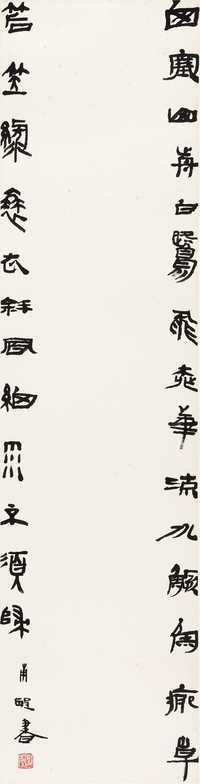 西塞山前白鷺飛桃華流水鱖魚肥青
箬笠綠蓑衣斜風細雨不須歸
書